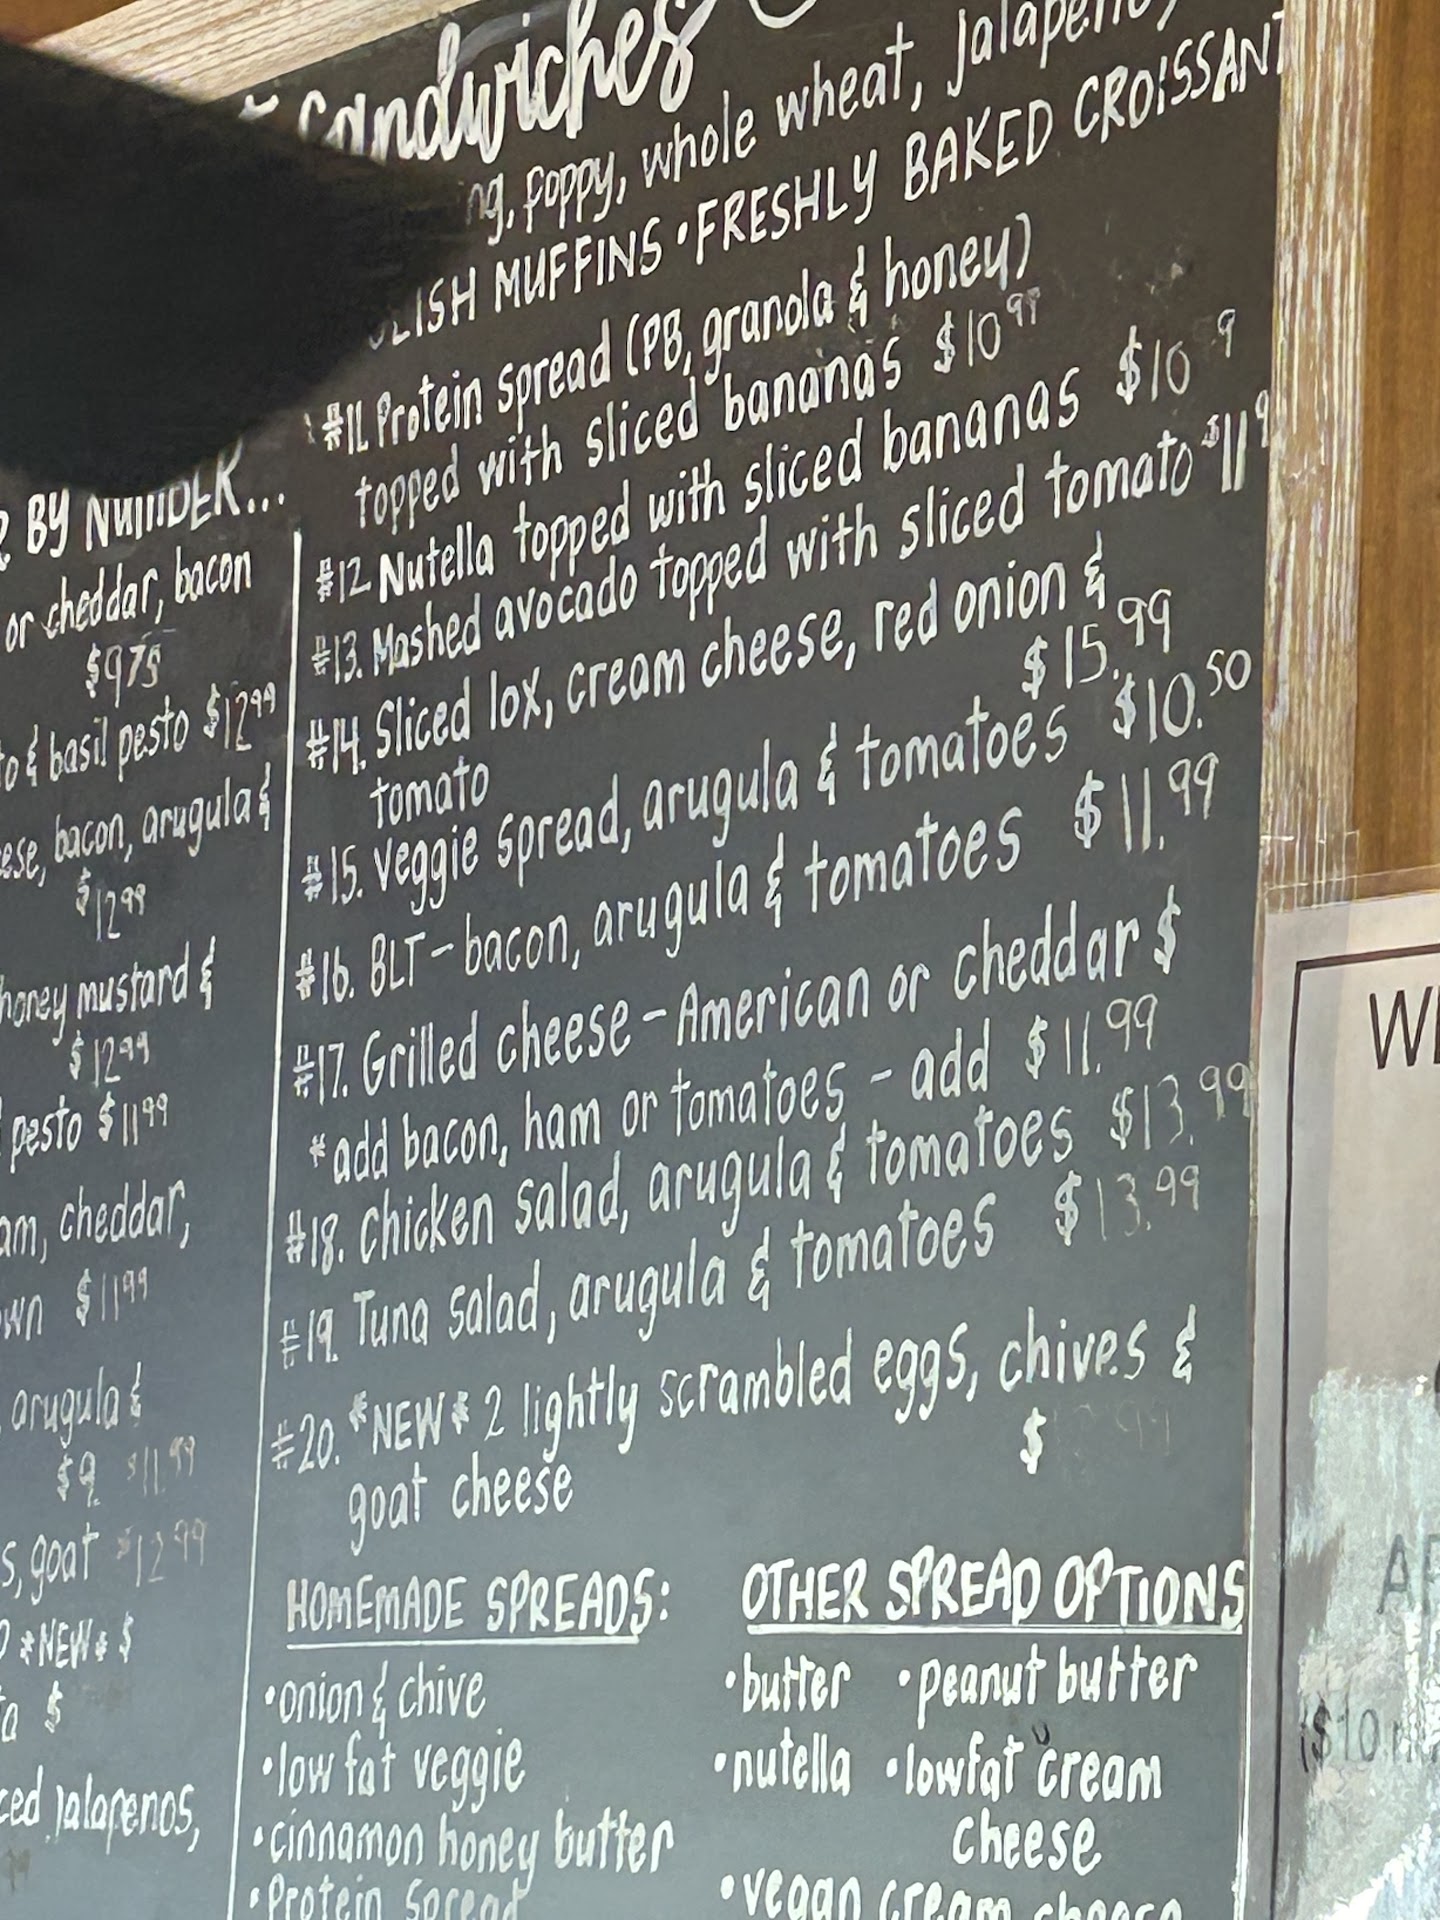 Sandwiches
poppy, whole wheat,
MUFFINS • FRESHLY BAKED CROISSANT
#11. Protein spread (PB, granola & honey)
topped with sliced bananas $10.99
#12. Nutella topped with sliced bananas $10
#13. Mashed avocado topped with sliced tomato $11
#14. Sliced lox, cream cheese, red onion &
tomato $15.99
#15. Veggie spread, arugula & tomatoes $10.50
#16. BLT - bacon, arugula & tomatoes $11.99
#17. Grilled cheese - American or cheddar $
*add bacon, ham or tomatoes - add $11.99
#18. Chicken salad, arugula & tomatoes $13.99
#19. Tuna salad, arugula & tomatoes $13.99
#20. *NEW* 2 lightly scrambled eggs, chives &
goat cheese $
BY NUMBER...
or cheddar, bacon
$9.75
& basil pesto $12.99
bacon, arugula &
$12.99
honey mustard &
$12.99
pesto $11.99
cheddar,
$11.99
arugula &
$9. $11.99
goat $12.99
*NEW* $
$
Jalapenos,
HOMEMADE SPREADS:
• onion & chive
• low fat veggie
• cinnamon honey butter
• Protein Spread
OTHER SPREAD OPTIONS
• butter • peanut butter
• nutella • lowfat cream
cheese
• vegan cream cheese